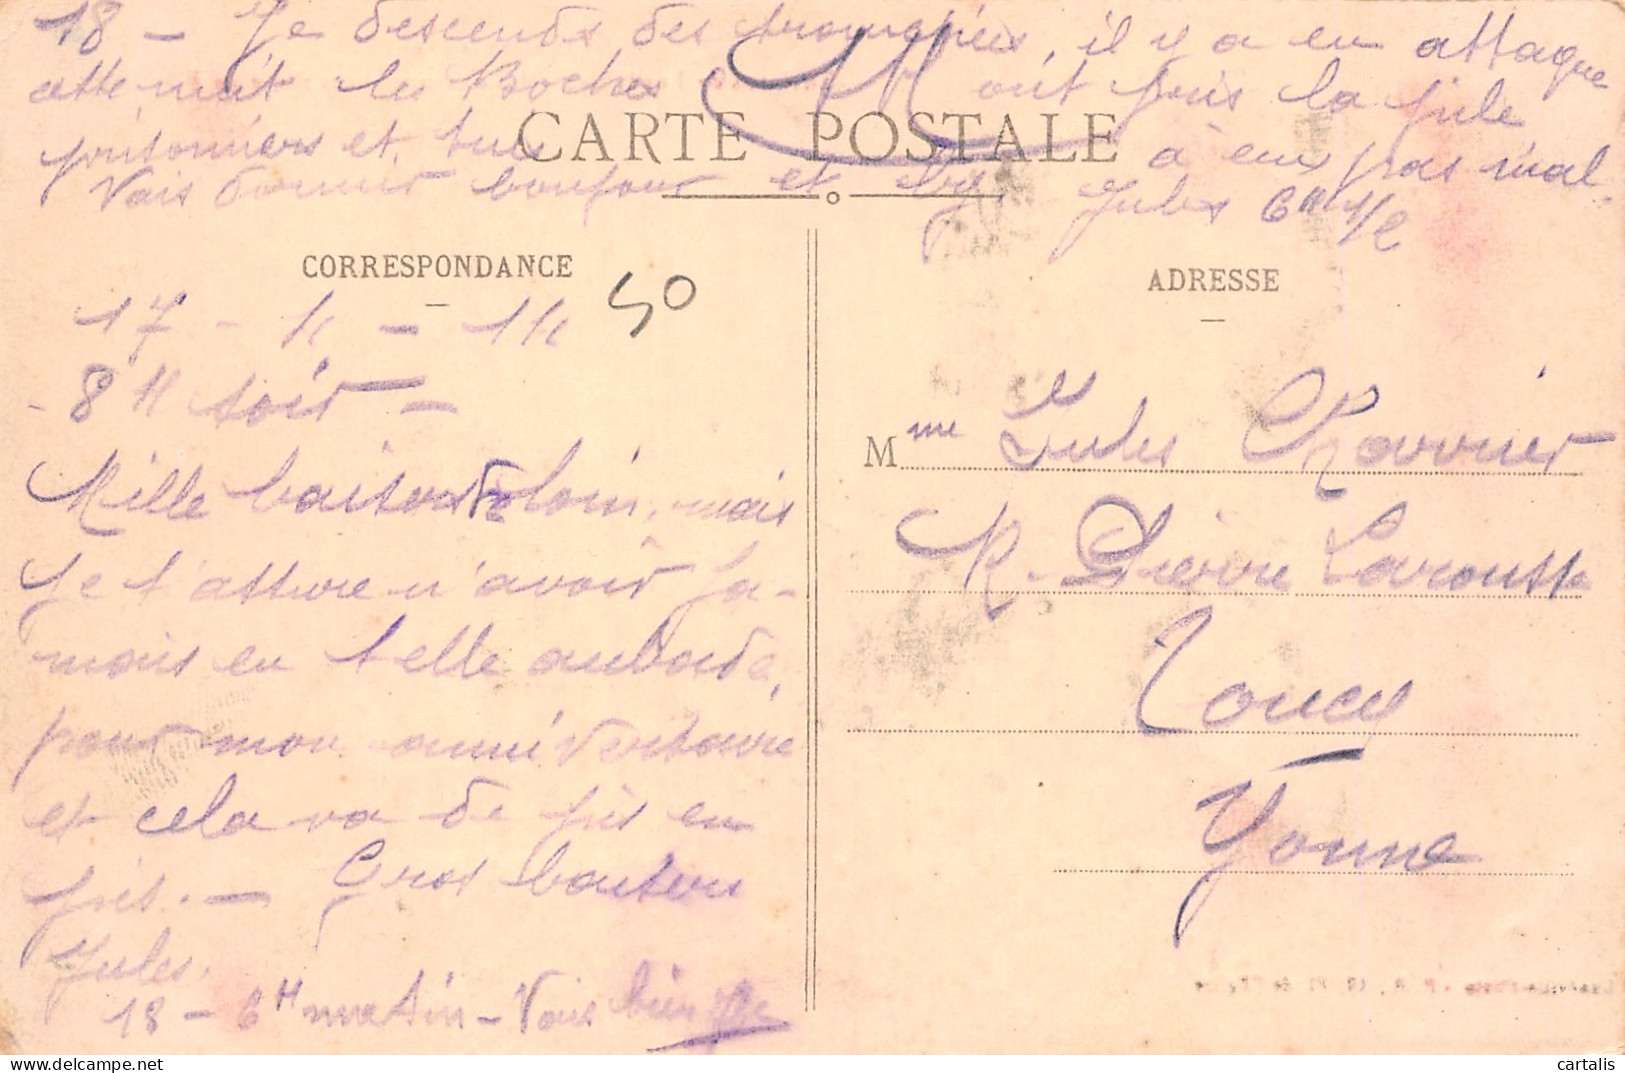 18 – Je descends des tranchées, il y a eu attaque
cette nuit les Boches ont pris la pile
prisonniers et tués à eux pas mal.
Vais donner bonjour et Jules 6H 1/2
CARTE POSTALE
CORRESPONDANCE
50
17 - -
- 8 H soir -
Mille baisers de loin, mais
je t'assure n'avoir ja-
mais eu telle aubade,
pour mon anniversaire
et cela va de pis en
pis. — Gros baisers
Jules.
18 - 6H matin - Vais bien
ADRESSE
Mme Jules Charrier
R. Pierre Larousse
Toucy
Yonne
cartalis